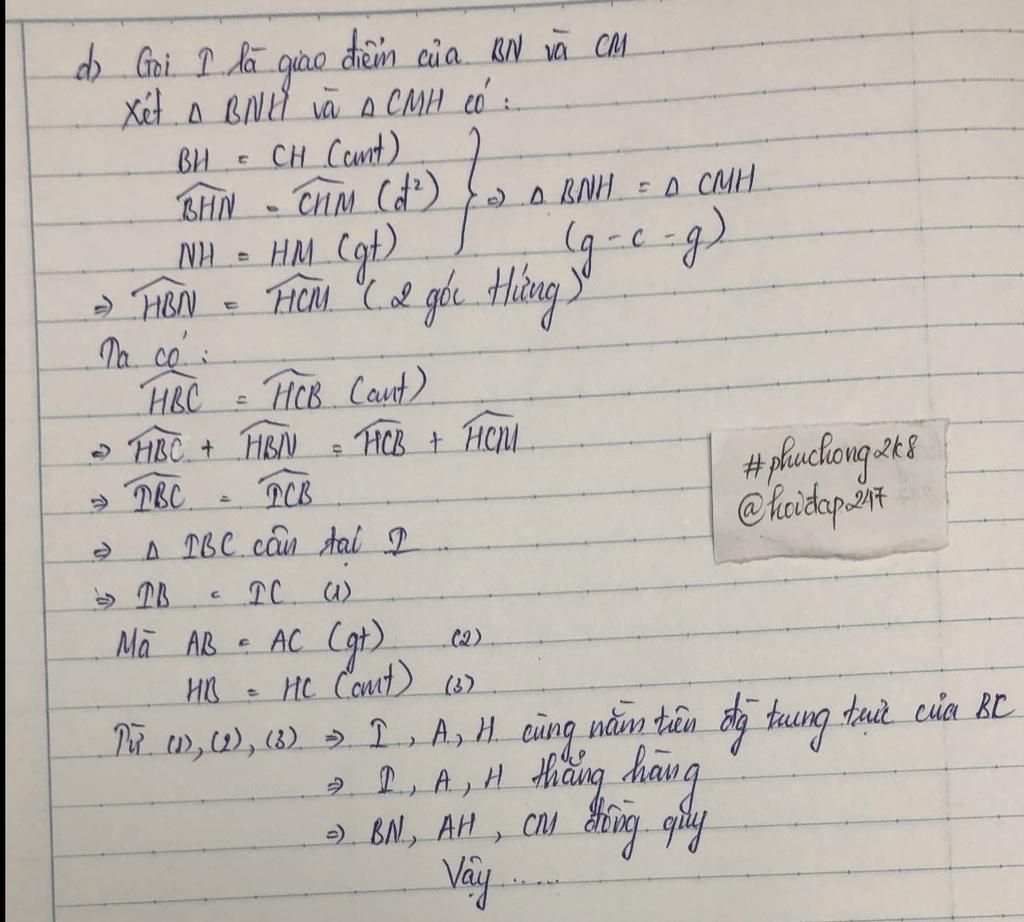 d) Gọi I là giao điểm của BN và CM
Xét Δ BNH và Δ CMH có:
BH = CH (cmt)
BHN = CHM (đ²) } ⇒ Δ BNH = Δ CMH
NH = HM (gt) (g-c-g)
⇒ HBN = HCM (2 góc t/ứng)
Ta có:
HBC = HCB (cmt)
⇒ HBC + HBN = HCB + HCM
⇒ IBC = ICB
⇒ Δ IBC cân tại I
⇒ IB = IC (1)
Mà AB = AC (gt) (2)
HB = HC (cmt) (3)
Từ (1), (2), (3) ⇒ I, A, H cùng nằm trên đg trung trực của BC
⇒ I, A, H thẳng hàng
⇒ BN, AH, CM đồng quy
Vậy ......
#phuchong2k8
@hoidap247